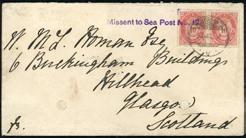 Missent to Sea Post No.
W. McL. Homan Esq
6 Buckingham Buildings
Hillhead
Glasgow
Scotland